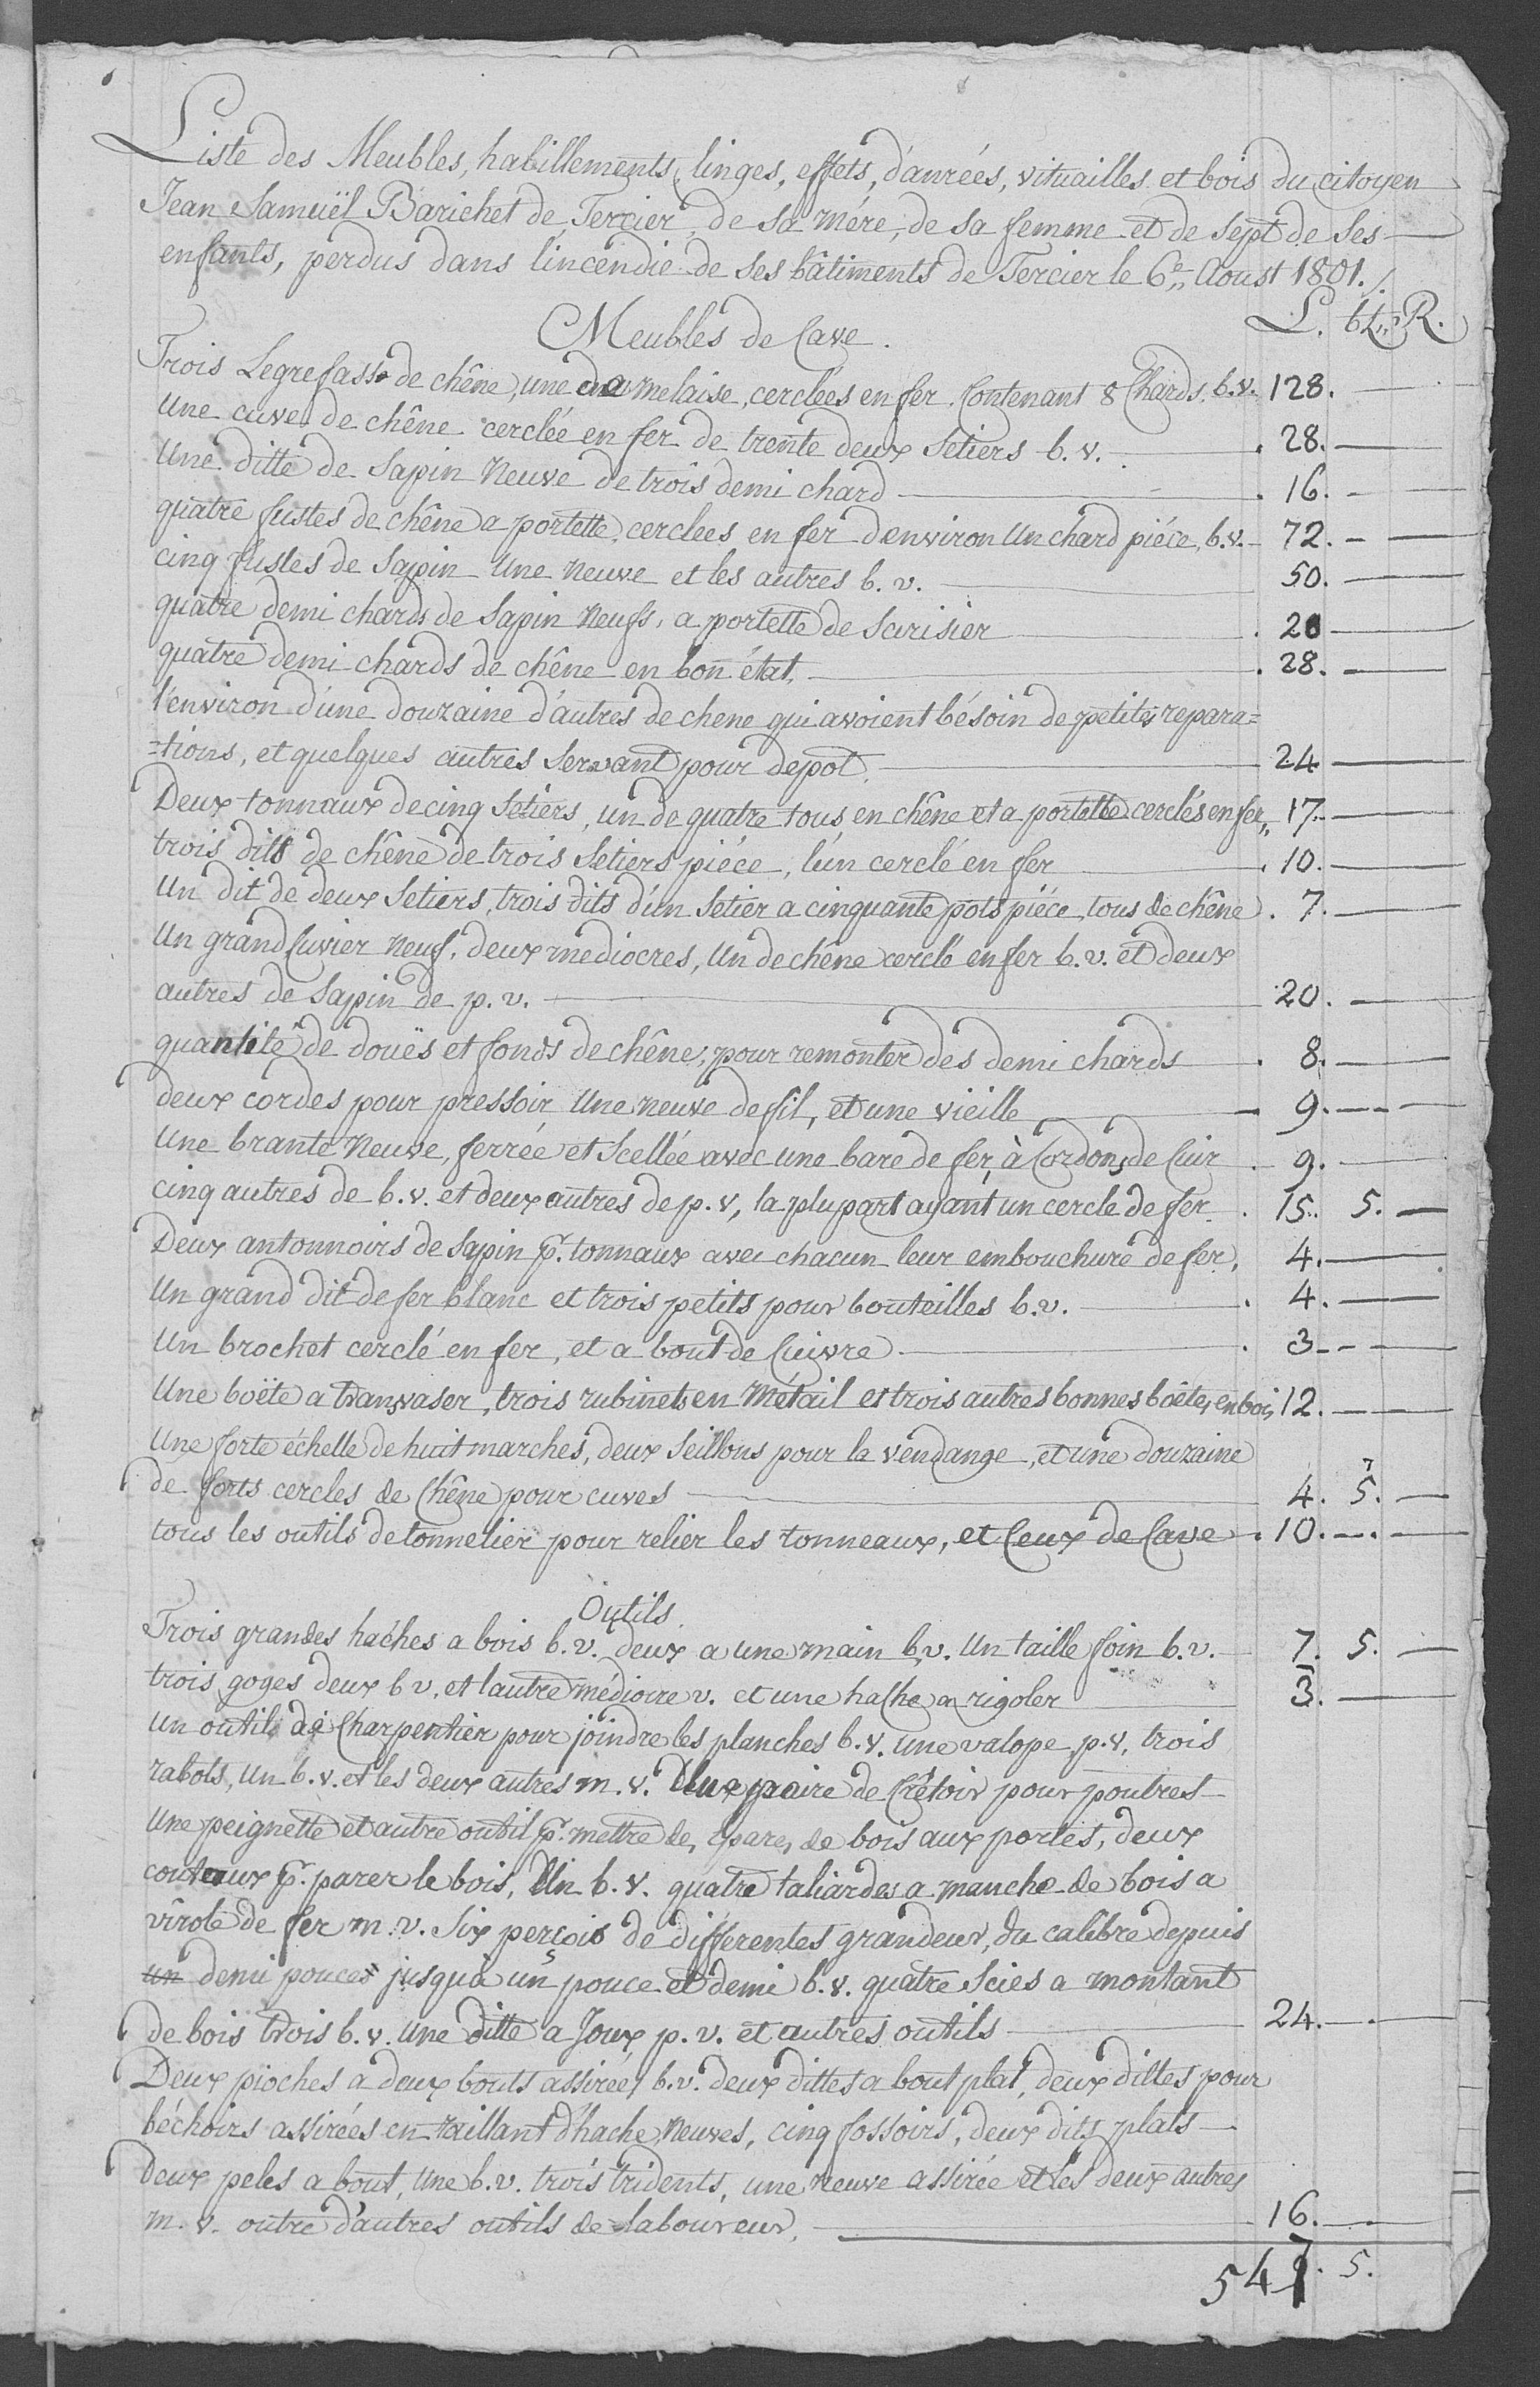 Liste des Meubles, habillements, linges, effets, d'anrées, vituailles et bois du citoyen
Jean Samuël Barichet de Tercier, de sa mére, de sa femme et de sept de ses
enfants, perdus dans l'incendie de ses bâtiments de Tercier le 6e Aoust 1801./.
Meubles de Cave. L. btz R.
Trois Legrefass de chêne, une en melaise, cerclées en fer, Contenant 8 Chards. b.v. 128.
Une cuve de chêne cerclée en fer de trente deux Setiers b. v. 28.
Une ditte de Sapin Neuve de trois demi chard 16.
quatre fustes de chêne a portette, cerclees en fer d'environ Un chard piéce, b.v. 72.
cinq fustes de Sapin Une Neuve et les autres b. v. 50.
quatre demi chards de Sapin Neufs, a portette de Serisier 20
quatre demi chards de chêne en bon état. 28.
l'environ d'une douzaine d'autres de chene qui avoient bésoin de petites repara=
=tions, et quelques autres servant pour depot. 24
Deux tonnaux de cinq Setiers, un de quatre tous en chêne et a portette cerclés en fer, 17.
trois dits de chêne de trois Setiers piéce, l'un cerclé en fer 10.
Un dit de deux Setiers, trois dits d'un Setier a cinquante pots piéce, tous de chêne. 7.
Un grand Cuvier Neuf, deux mediocres, Un de chêne cerclé en fer b.v. et deux
autres de Sapin de p. v. 20.
quantité de douës et fonds de chêne, pour remonter des demi chards 8.
deux cordes pour pressoir Une neuve de fil, et une vieille 9.
Une brante Neuve, ferrée et Scellée avec une bare de fer, à Cordons de Cuir 9.
cinq autres de b.v. et deux autres de p. v, la plupart ayant un cercle de fer. 15. 5.
Deux antonnoirs de Sapin pr. tonnaux avec chacun leur embouchure de fer, 4.
Un grand dit de fer blanc et trois petits pour bouteilles b.v. 4.
Un brochet cerclé en fer, et a bout de Cuivre 3
Une boëte a transvaser, trois rubinets en Métail et trois autres bonnes boêtes en bois 12.
Une forte échelle de huit marches, deux Seillons pour la vendange, et une douzaine
de forts cercles de Chêne pour cuves 4. 5.
tous les outils de tonnelier pour relier les tonneaux, et Ceux de Cave 10.
Outils
Trois grandes haches a bois b.v. deux a une main b.v. Un taille foin b.v. 7. 5.
trois goges deux b v. et l'autre médiocre v. et une hache a rigoler 3.
Un outil de Charpentier pour joindre les planches b.v. une valope p.v, trois
rabots, Un b.v. et les deux autres m. v. Une paire de Crétoir pour poutres
Une peignette et autre outil pr. mettre des épares de bois aux portes, deux
couteaux pr. parer le bois, Un b. v. quatre taliardes a manche de bois a
vîrole de fer m. v. Six perçois de différentes grandeur, du calibre depuis
un demi pouces jusqu'à un pouce et demi b.v. quatre Scies a montant
de bois trois b. v. Une ditte a Joux p. v. et autres outils 24.
Deux pioches a deux bouts assirées b.v. deux dittes a bout plat, deux dittes pour
béchoirs assirées en taillant d'hache, Neuves, cinq fossoirs, deux dits plats
Deux peles a bout, Une b.v. trois tridents, une neuve assirée et les deux autres
m. v. outre d'autres outils de laboureur, 16.
547. 5.